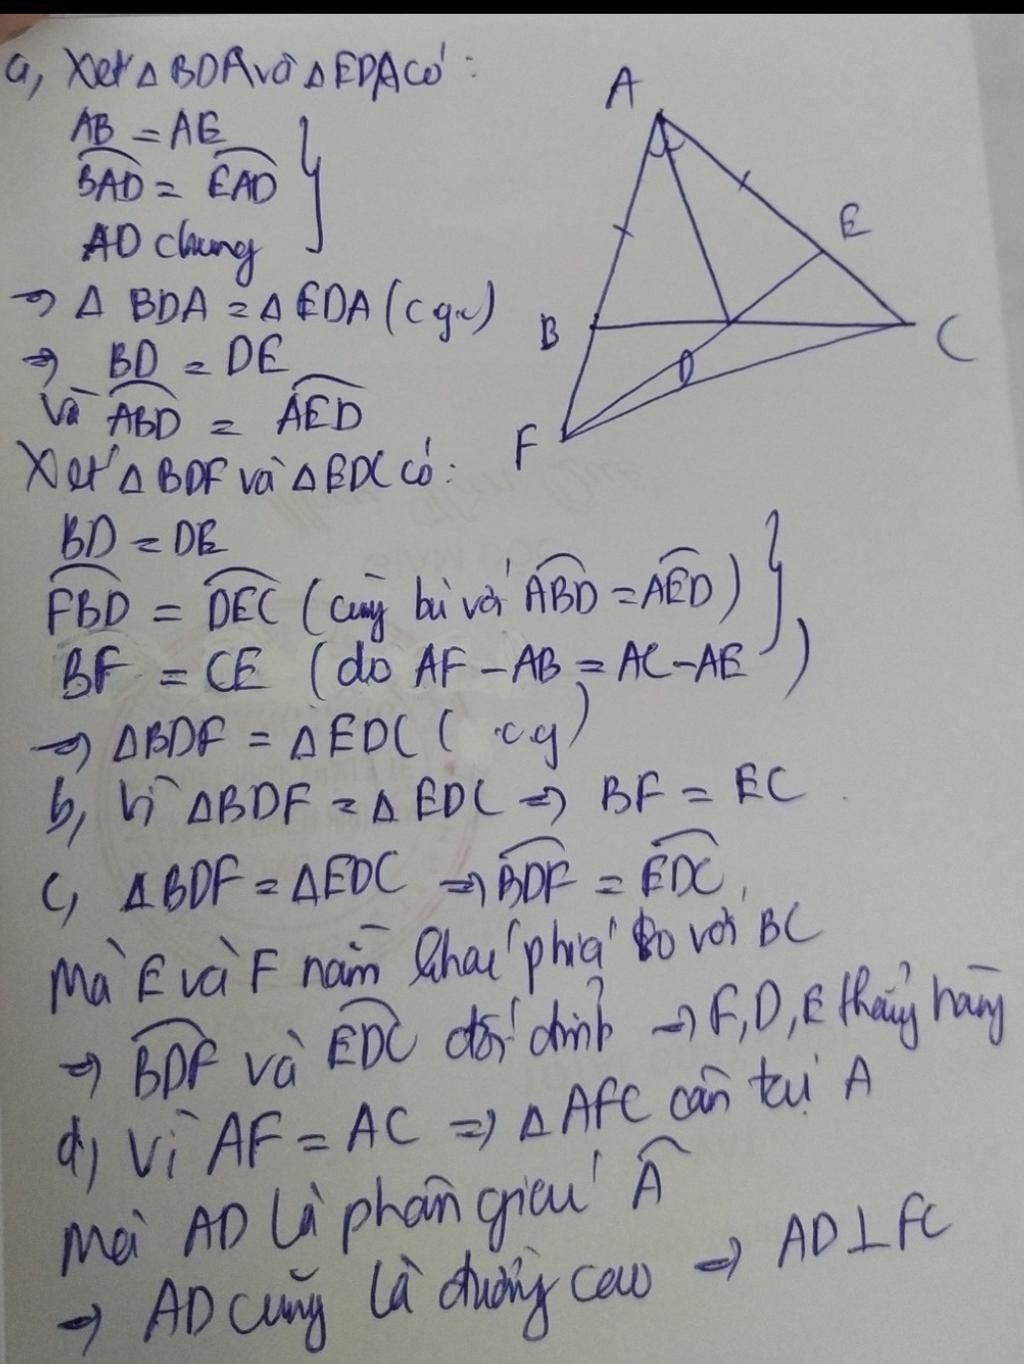 a, Xét Δ BDA và Δ EDA có:
AB = AE
BAD = EAD
AD chung
=> Δ BDA = Δ EDA (cgc)
=> BD = DE
và ABD = AED
Xét Δ BDF và Δ EDC có:
BD = DE
FBD = DEC (cùng bù với ABD = AED)
BF = CE (do AF - AB = AC - AE)
=> ΔBDF = Δ EDC ( cg)
b, Vì ΔBDF = Δ EDC => BF = EC
c, ΔBDF = ΔEDC => BDF = EDC,
Mà E và F nằm khác phía so với BC
=> BDF và EDC đối đỉnh => F, D, E thẳng hàng
d) Vì AF = AC => Δ AFC cân tại A
Mà AD là phân giác A
=> AD cũng là đường cao => AD⊥FC
A
E
B
C
D
F